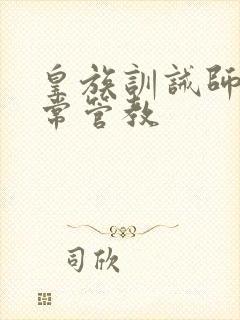 皇族訓誡師
常管教
司欣